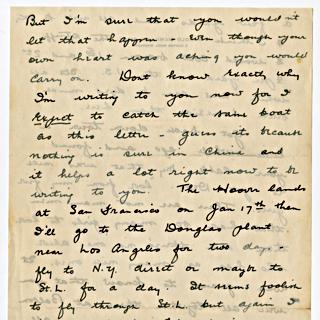 But I'm sure that you wouldn't
let that happen - even though your
own heart was aching you would
carry on. Dont know exactly why
I'm writing to you now for I
expect to catch the same boat
as this letter - guess its because
nothing is sure in China and
it helps a lot right now to be
writing to you. The Hoover lands
at San Francisco on Jan 17th then
I'll go to the Douglas plant
near Los Angeles for two days -
fly to N.Y. direct or maybe to
St. L. for a day. It seems foolish
to fly through St. L but again I